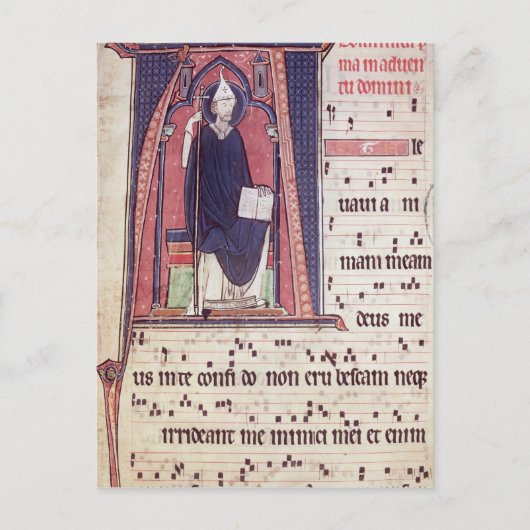 Dominica p
ma in adven
tu domini
A
te
levavi a ni
mam meam
deus me
us in te confi do non eru bescam neqz
irrideant me inimici mei et enim